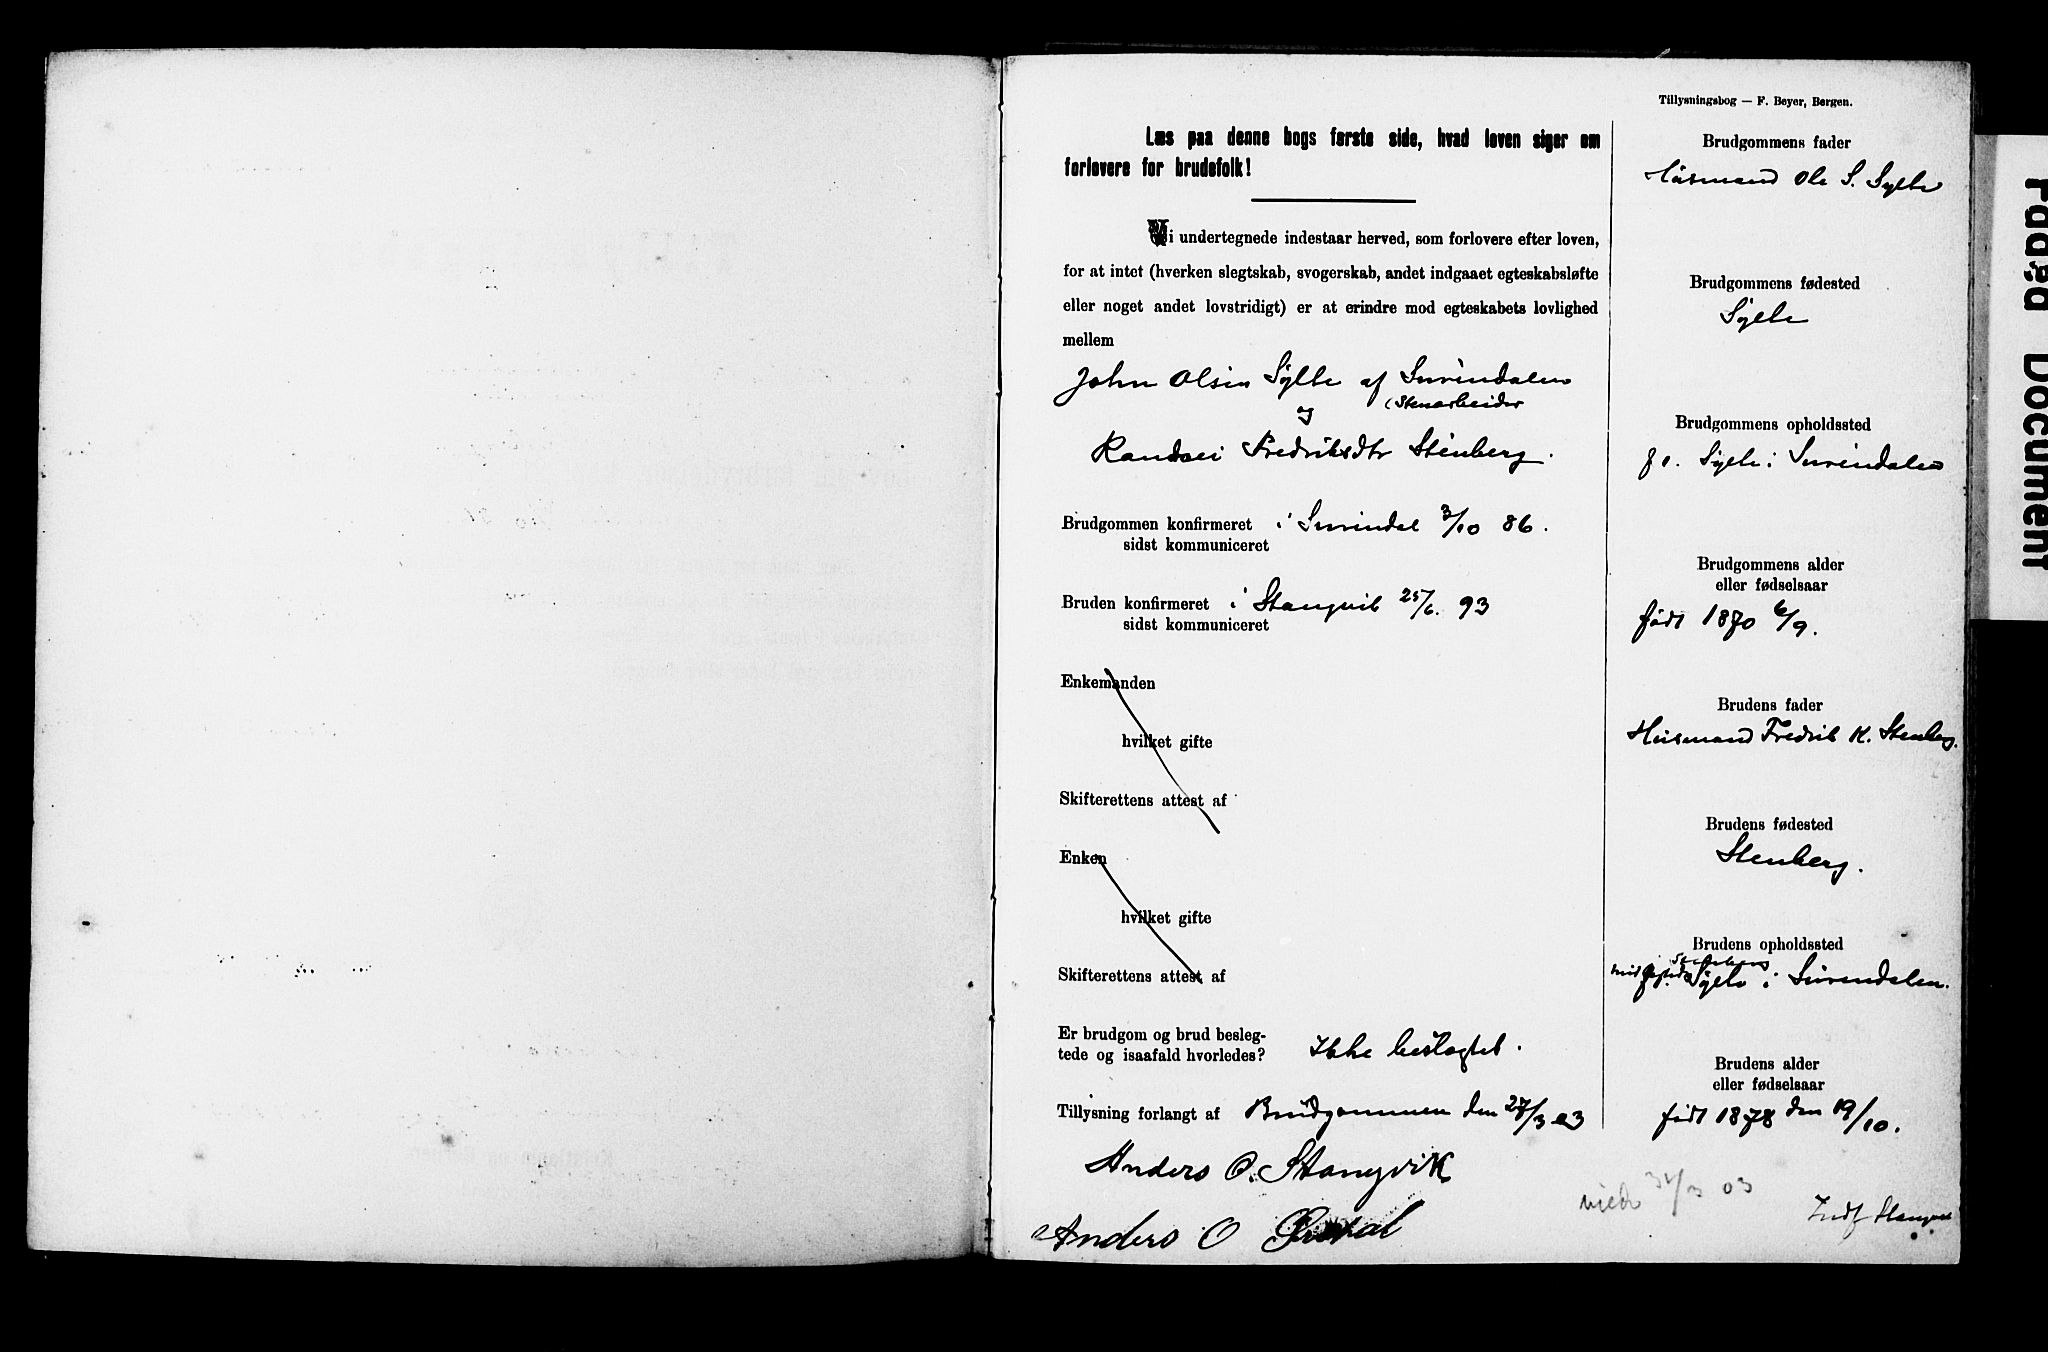 Tillysningsbog — F. Beyer, Bergen.
Læs paa denne bogs første side, hvad loven siger om
forlovere for brudefolk!
Vi undertegnede indestaar herved, som forlovere efter loven,
for at intet (hverken slegtskab, svogerskab, andet indgaaet egteskabsløfte
eller noget andet lovstridigt) er at erindre mod egteskabets lovlighed
mellem
John Olsen Sylte af Surendalen
(Stenarbeider
og
Randei Fredriksdtr Stenberg.
Brudgommen konfirmeret i Surendal 3/10 86.
sidst kommuniceret
Bruden konfirmeret i Stangvik 25/6. 93
sidst kommuniceret
Enkemanden
hvilket gifte
Skifterettens attest af
Enken
hvilket gifte
Skifterettens attest af
Er brudgom og brud besleg-
tede og isaafald hvorledes? Ikke beslægtet.
Tillysning forlangt af Brudgommen den 27/3 03
Anders O. Stangvik
Anders O
Brudgommens fader
Husmand Ole S. Sylte
Brudgommens fødested
Sylte
Brudgommens opholdssted
Sylte i Surendalen
Brudgommens alder
eller fødselsaar
født 1870 6/9.
Brudens fader
Husmand Fredrik K. Stenberg.
Brudens fødested
Stenberg.
Brudens opholdssted
Stenberg
Sylte i Surendalen.
Brudens alder
eller fødselsaar
født 1878 den 19/10.
viede 31/3 03
Indf Stangvik
Pdağa Document